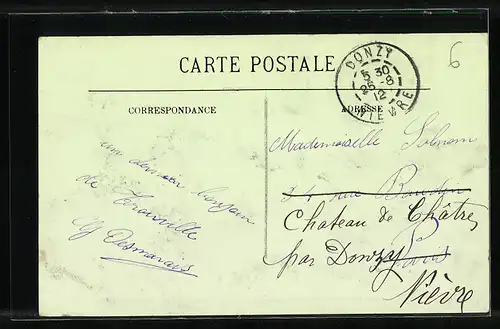 CARTE POSTALE
CORRESPONDANCE
ADRESSE
DONZY
5 30
25 -8
12
NIEVRE
6
un dernier bonjour
de Trouville
G Desmarais
Mademoiselle
34 rue Baudin
Paris
Chateau de Châtre
par Donzy
Nièvre